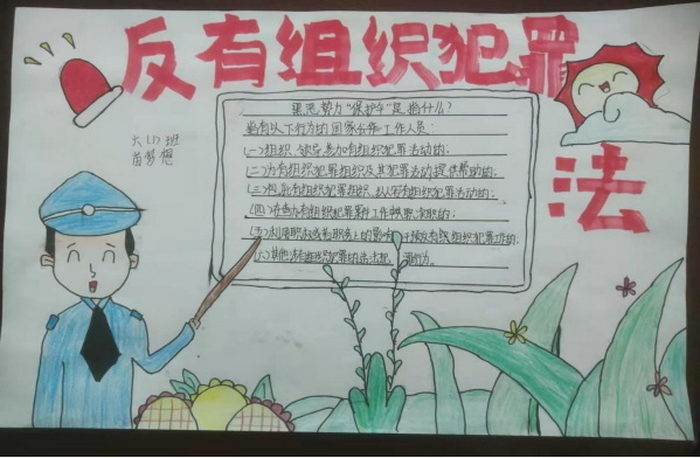 反有组织犯罪法
六(1)班
苗梦想
黑恶势力“保护伞”是指什么?
指有以下行为的国家公作工作人员:
(一)组织、领导、参加有组织犯罪活动的;
(二)为有组织犯罪组织及其犯罪活动提供帮助的;
(三)包庇有组织犯罪组织、纵容有组织犯罪活动的;
(四)在查办有组织犯罪案件工作中失职渎职的;
(五)利用职权或者职务上的影响干预反有组织犯罪工作的;
(六)其他涉有组织犯罪的违法犯罪行为。